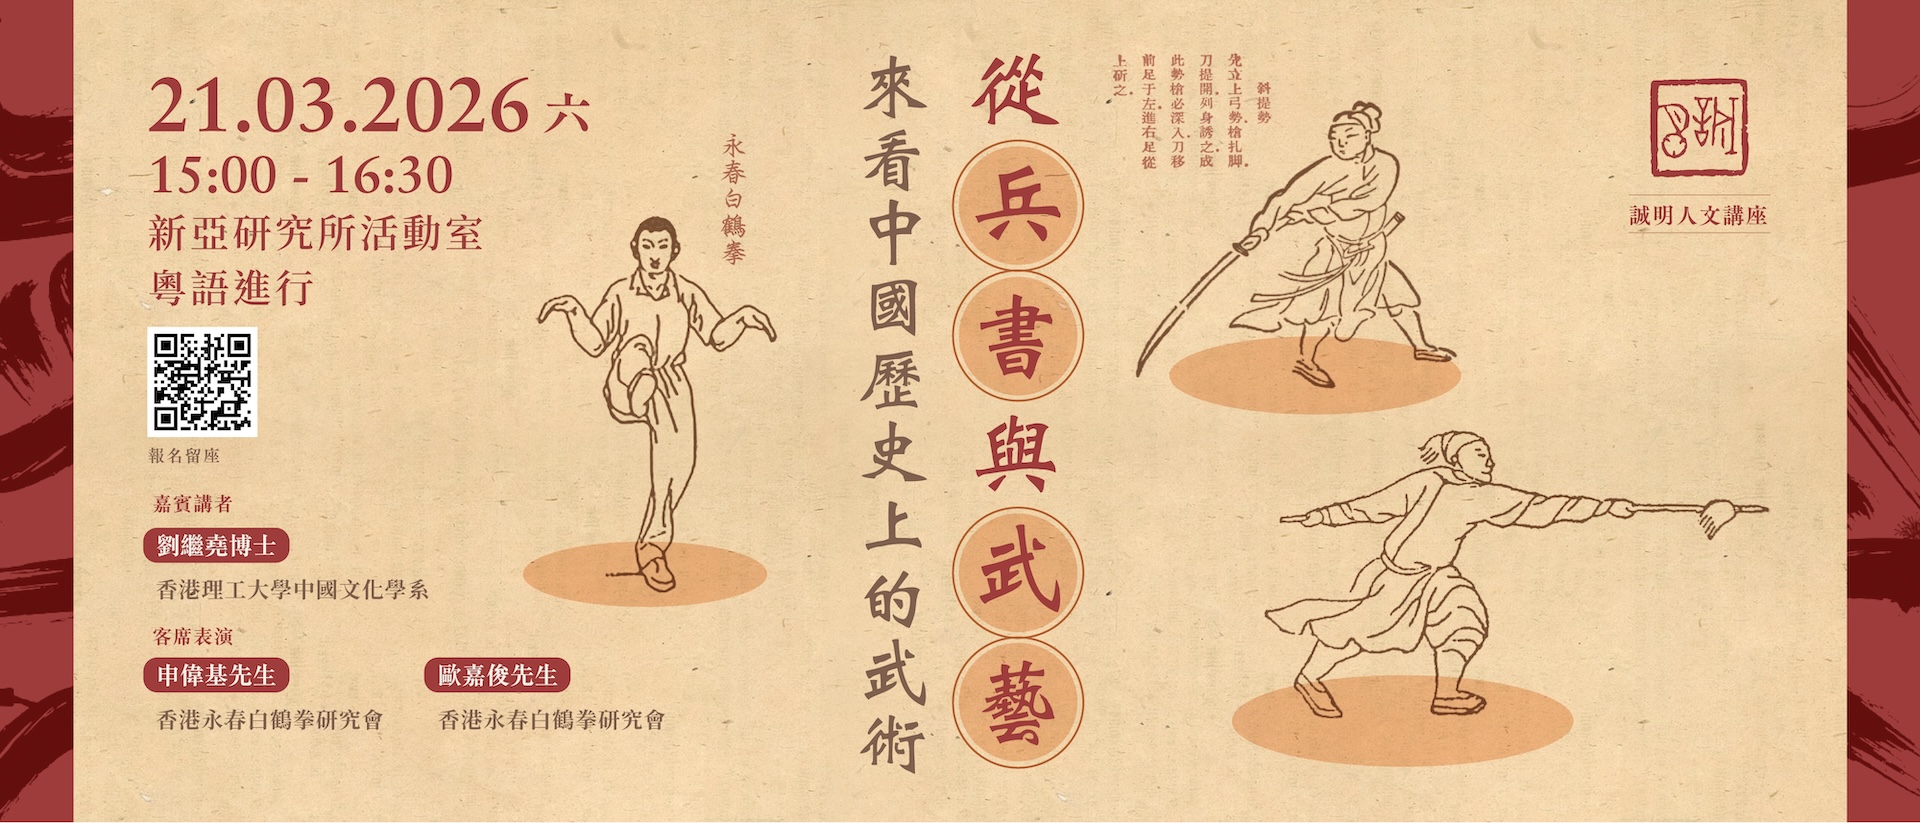 21.03.2026 六
15:00 - 16:30
新亞研究所活動室
粵語進行
報名留座
嘉賓講者
劉繼堯博士
香港理工大學中國文化學系
客席表演
申偉基先生
香港永春白鶴拳研究會
歐嘉俊先生
香港永春白鶴拳研究會
永春白鶴拳
從兵書與武藝
來看中國歷史上的武術
斜提勢
先立上弓勢槍扎脚.
刀提開列身誘之成
此勢槍必深入.刀移
前足于左.進右足從
上斫之.
誠明人文講座